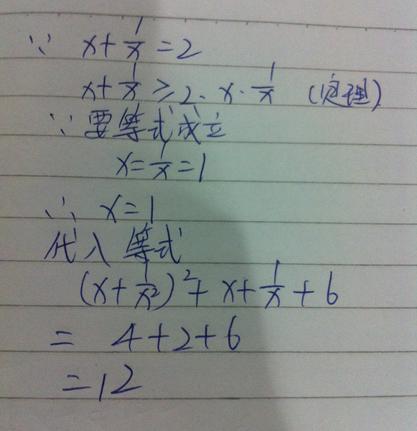 ∵ x+1/x=2
x+1/x≥2·x·1/x (定理)
∵要等式成立
x=1/x=1
∴ x=1
代入等式
(x+1/x²)²+x+1/x+6
= 4+2+6
=12